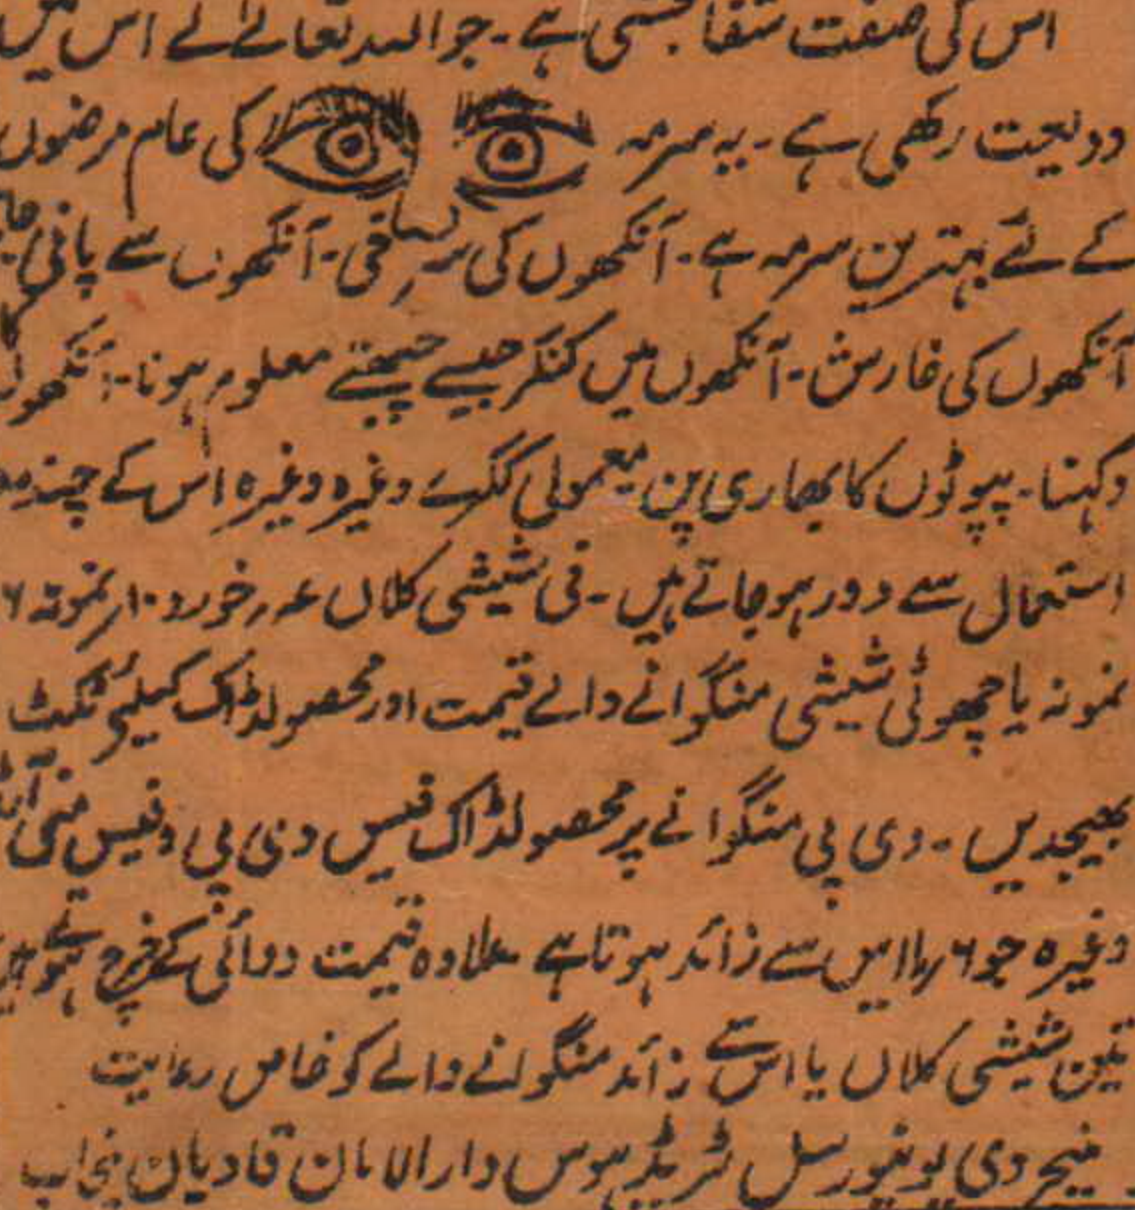 اس کی صفت شفا بخشی ہے۔ جو اللہ تعالےٰ نے اس میں
ودیعت رکھی ہے۔ یہ سرمہ کی عام مرضوں
کے لئے بہترین سرمہ ہے۔ آنکھوں کی سرخی۔ آنکھوں سے پانی
آنکھوں کی خارش۔ آنکھوں میں کنکر جیسے چبھتے معلوم ہونا۔ آنکھوں
دکہنا۔ پپوٹوں کا بھاری پن معمولی ککرے وغیرہ وغیرہ اس کے چند
استعمال سے دور ہو جاتے ہیں۔ فی شیشی کلاں عہ خورد ۱۰؍ نمونہ ۶
نمونہ یا چھوٹی شیشی منگوانے والے قیمت اور محصولڈاک کیلئے ٹکٹ
بھیجدیں۔ وی پی منگوانے پر محصولڈاک فیس وی پی و فیس منی آرڈر
وغیرہ جو ۶؍ یا اس سے زائد ہوتا ہے علاوہ قیمت دوائی کے خرچ ہوتے ہیں
تین شیشی کلاں یا اس سے زائد منگوانے والے کو خاص رعایت
منیجر دی یونیورسل ٹریڈ ہوس دارالامان قادیان پنجاب